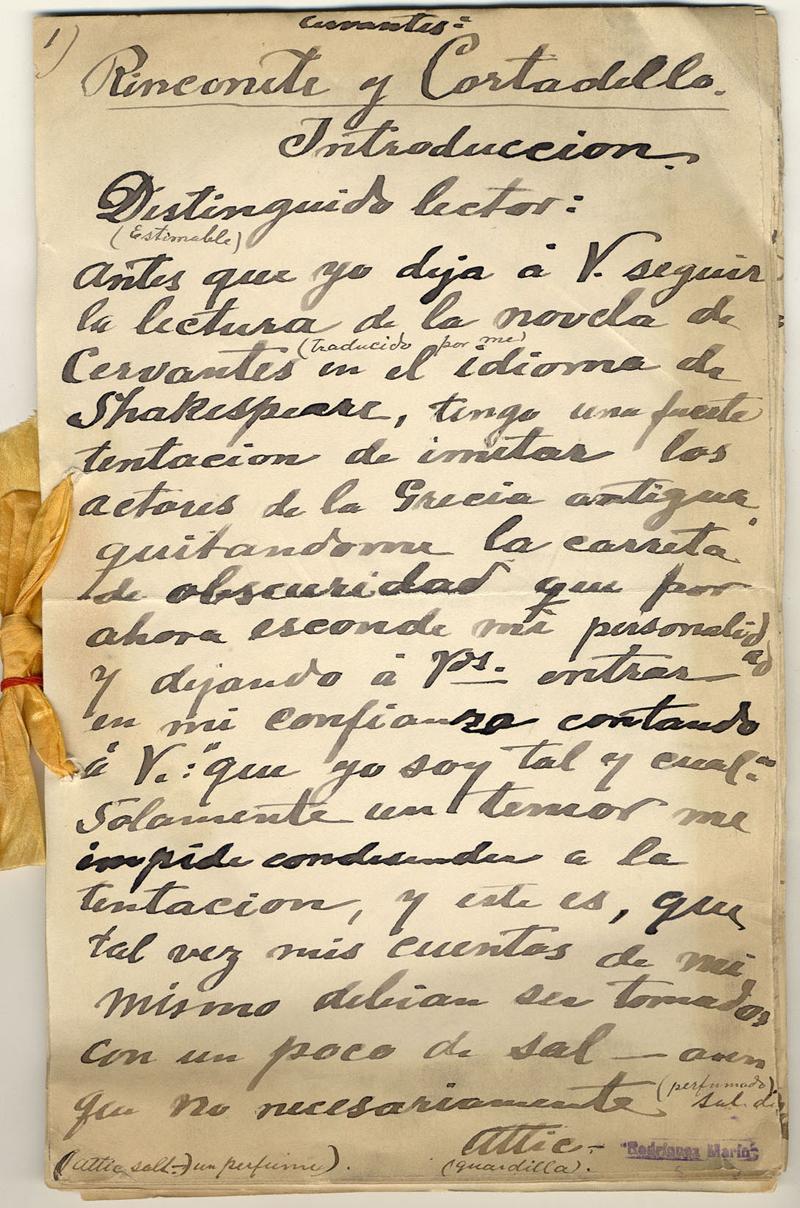 1)
Cervantes:
Rinconete y Cortadillo.
Introduccion.
Distinguido lector:
(Estimable)
Antes que yo deja á V. seguir
la lectura de la novela de
(traducido por me)
Cervantes en el idioma de
Shakespeare, tengo una fuerte
tentacion de imitar los
actores de la Grecia antigua
quitandome la carreta
de obscuridad que por
ahora esconde mi personalidad
y dejando á Vs. entrar
en mi confianza contando
á V.: "que yo soy tal y cual."
Solamente un temor me
impide condesender a la
tentacion, y este es, que
tal vez mis cuentos de mi
mismo debian ser tomados
con un poco de sal — aun
que no necesariamente (perfumado) sal de
Attic-
(attic salt-) un perfume).
(guardilla).
"Rodríguez Marín"